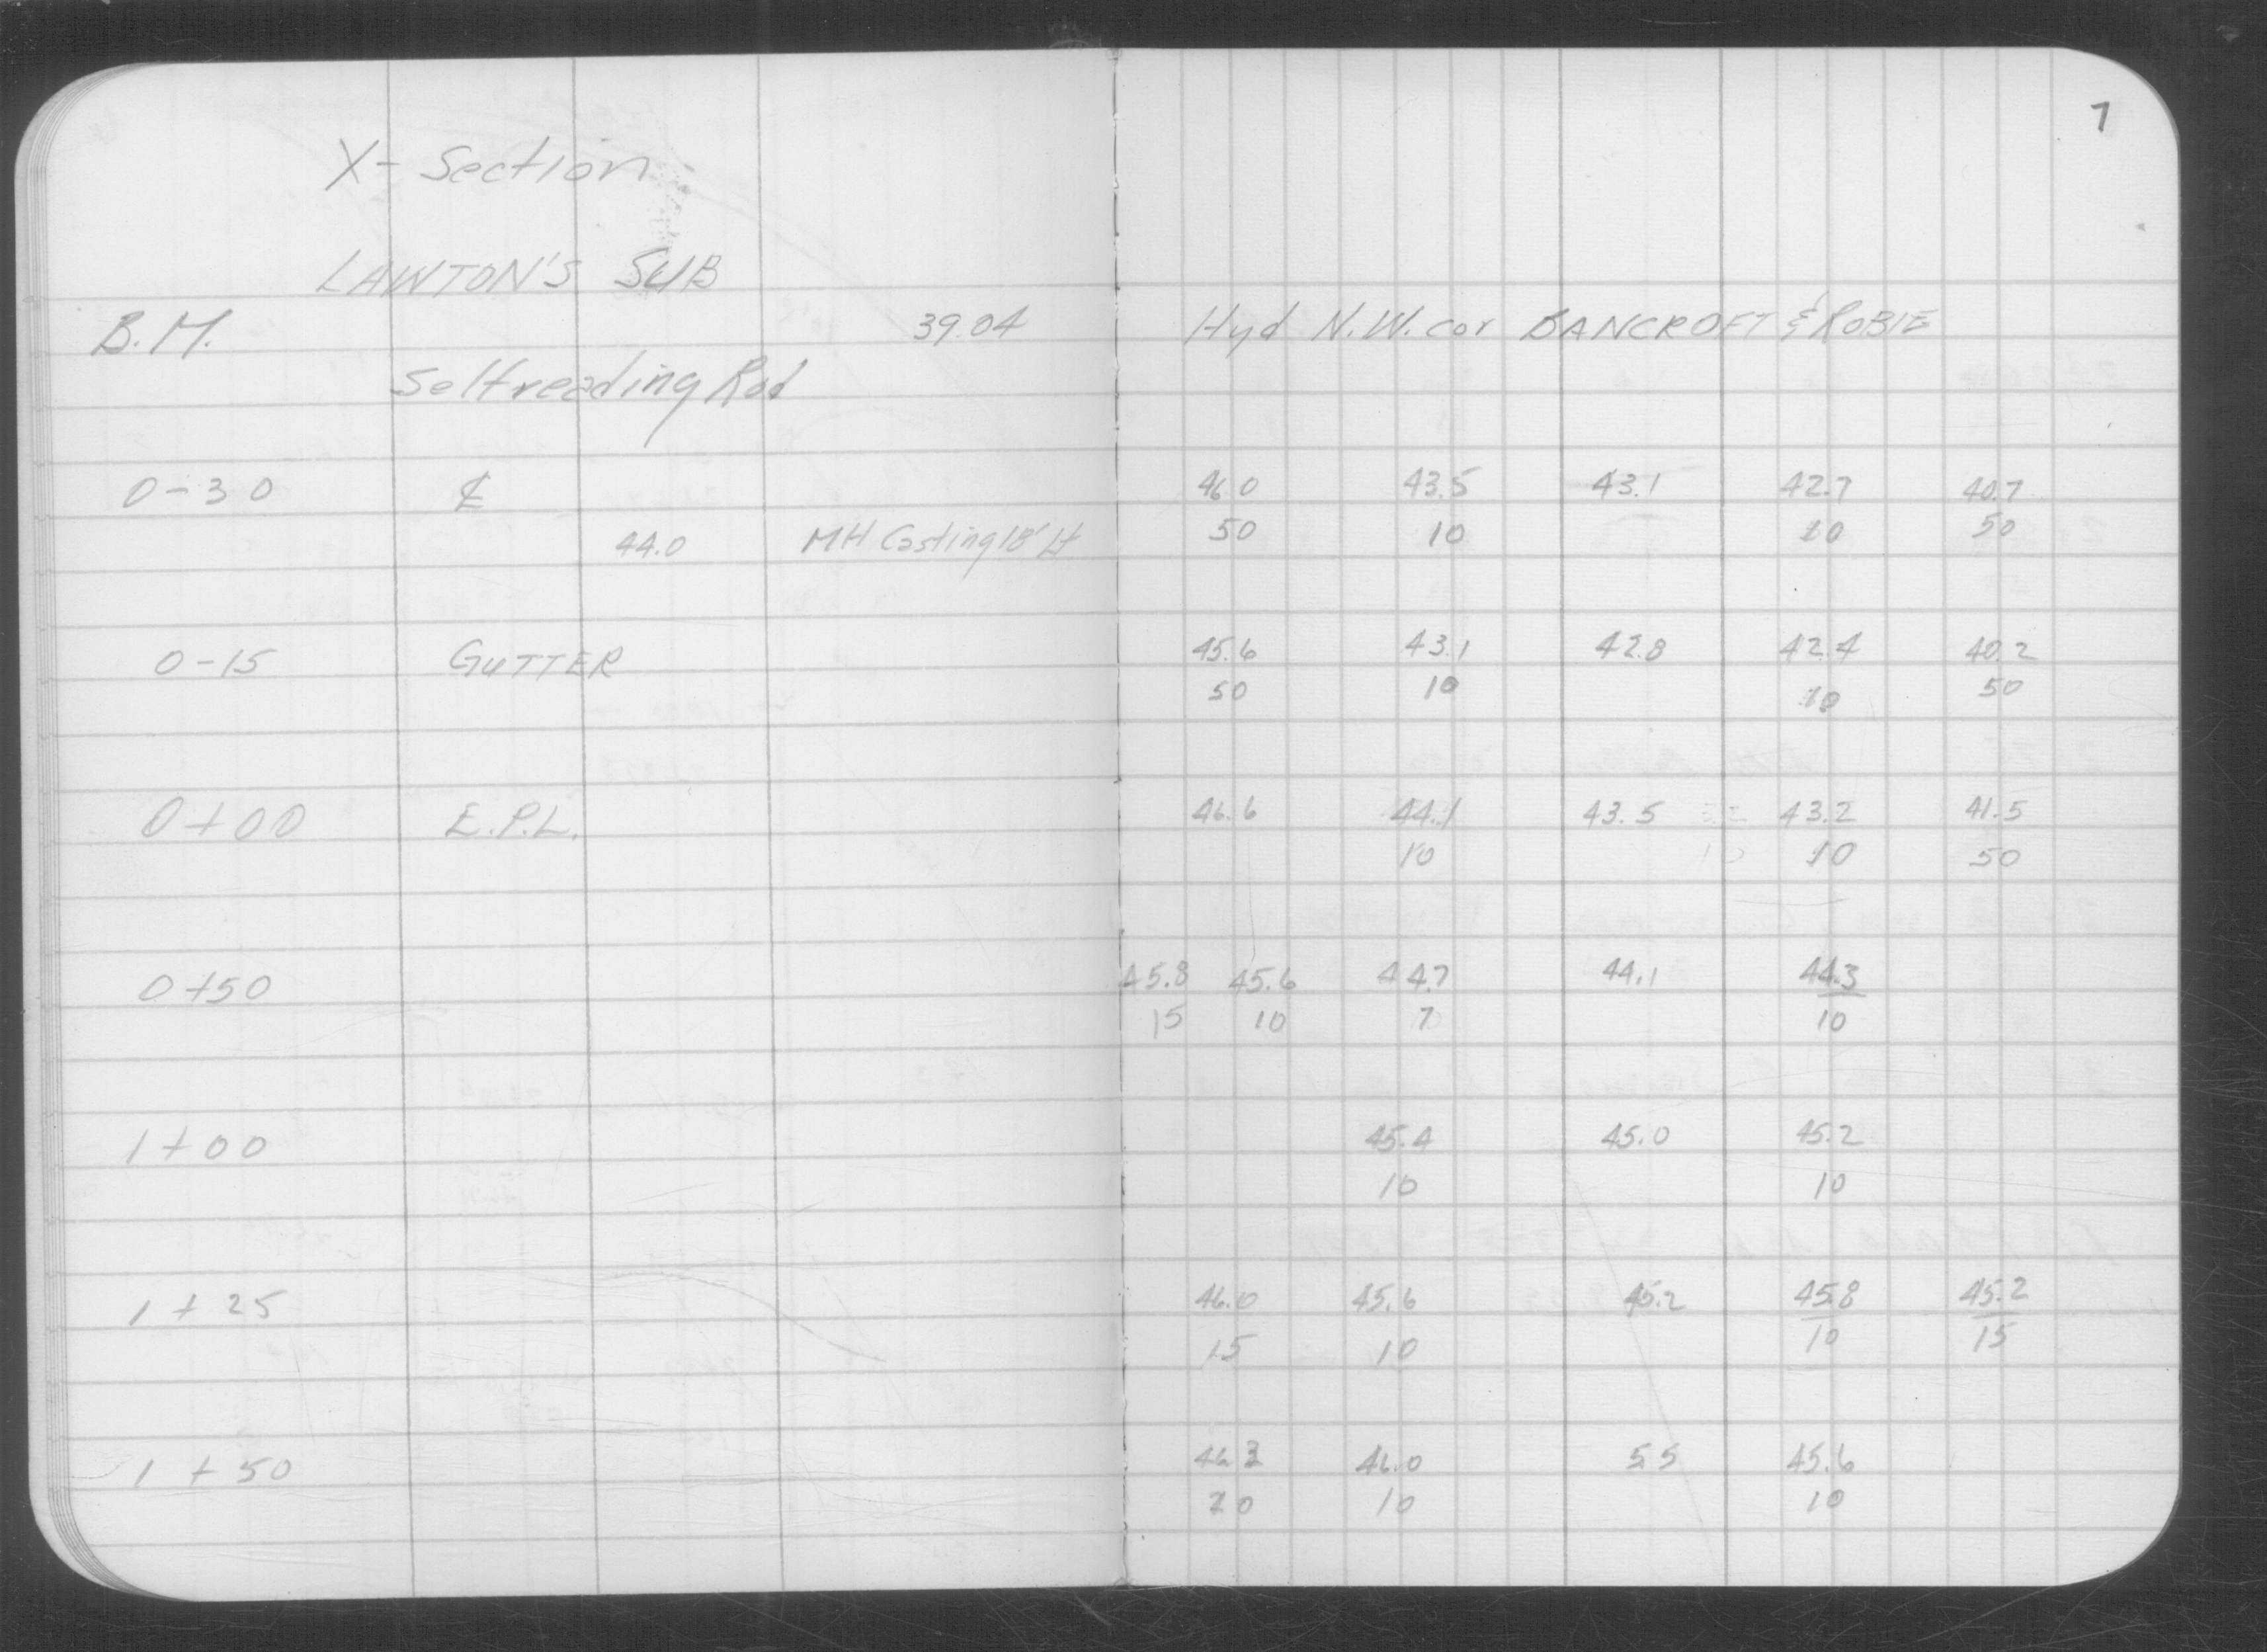 7
X- Section
LAWTON'S SUB
B.M. 39.04 Hyd N.W. cor BANCROFT & ROBIE
Selfreading Rod
0-30 ℄ 46.0 43.5 43.1 42.7 40.7
44.0 MH Casting 18' Lt 50 10 10 50
0-15 GUTTER 45.6 43.1 42.8 42.4 40.2
50 10 10 50
0+00 E.P.L. 46.6 44.1 43.5 43.2 41.5
10 10 50
0+50 45.8 45.6 44.7 44.1 44.3
15 10 7 10
1+00 45.4 45.0 45.2
10 10
1+25 46.0 45.6 45.2 45.8 45.2
15 10 10 15
1+50 46.3 46.0 55 45.6
20 10 10